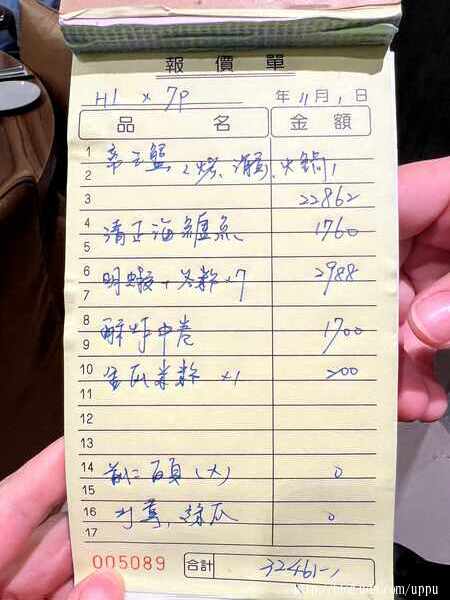 報價單
H1 x 7P 年 11 月 1 日
品名 金額
1 帝王蟹 (烤、 火鍋)
2
3 22862
4 清正海鱸魚 1760
5
6 明蝦+冬粉 x7 2988
7
8 酥炸中卷 1700
9
10 金瓜米粉 x1 200
11
12
13
14 (大) 0
15
16 絲瓜 0
17
005089 合計 32461-